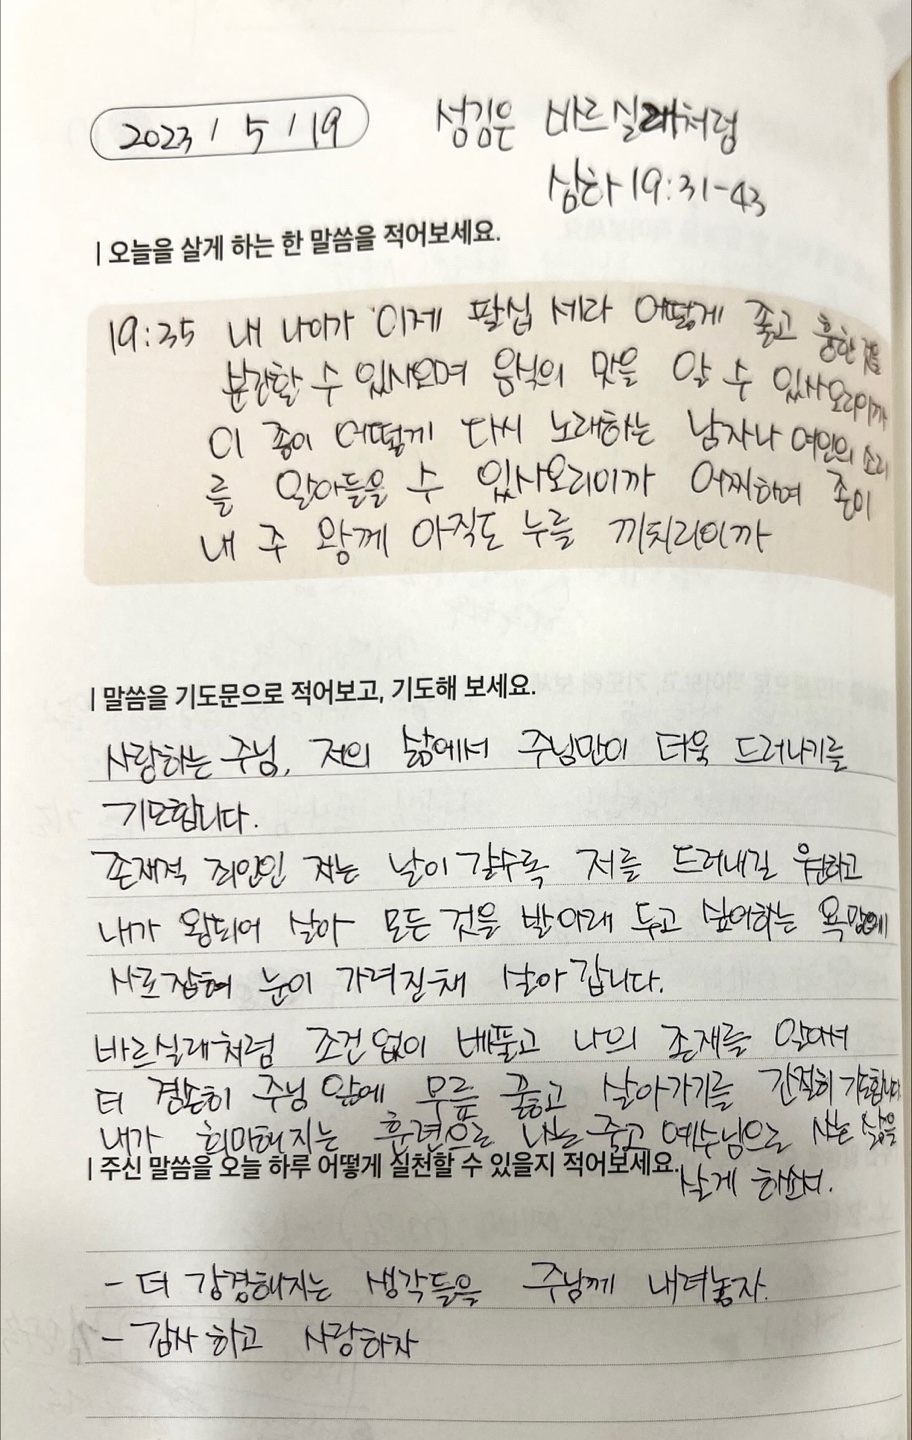 2023 / 5 / 19
섬김은 바르실래처럼
삼하 19:31-43
| 오늘을 살게 하는 한 말씀을 적어보세요.
19:35 내 나이가 이제 팔십 세라 어떻게 좋고 흉한 것을
분간할 수 있사오며 음식의 맛을 알 수 있사오리이까
이 종이 어떻게 다시 노래하는 남자나 여인의 소리
를 알아들을 수 있사오리이까 어찌하여 종이
내 주 왕께 아직도 누를 끼치리이까
| 말씀을 기도문으로 적어보고, 기도해 보세요.
사랑하는 주님, 저의 삶에서 주님만이 더욱 드러나기를
기도합니다.
존재적 죄인인 저는 날이 갈수록 저를 드러내길 원하고
내가 왕되어 살아 모든 것을 발 아래 두고 싶어하는 욕망에
사로잡혀 눈이 가려진채 살아갑니다.
바르실래처럼 조건없이 베풀고 나의 존재를 알아서
더 겸손히 주님 앞에 무릎 꿇고 살아가기를 간절히 기도합니다
내가 희미해지는 훈련으로 나는 죽고 예수님으로 사는 삶을
살게 하소서.
| 주신 말씀을 오늘 하루 어떻게 실천할 수 있을지 적어보세요.
- 더 강경해지는 생각들을 주님께 내려놓자.
- 감사하고 사랑하자